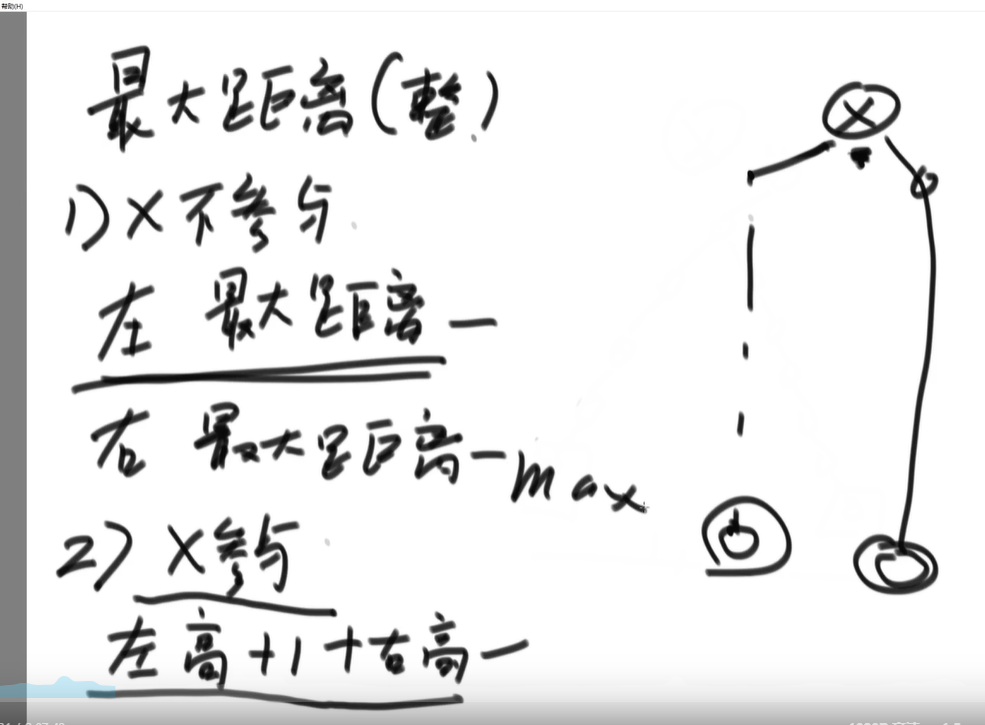 帮助(H)
最大距离(整)
1) X不参与
左 最大距离
右 最大距离
max
2) X参与
左高+1+右高
X